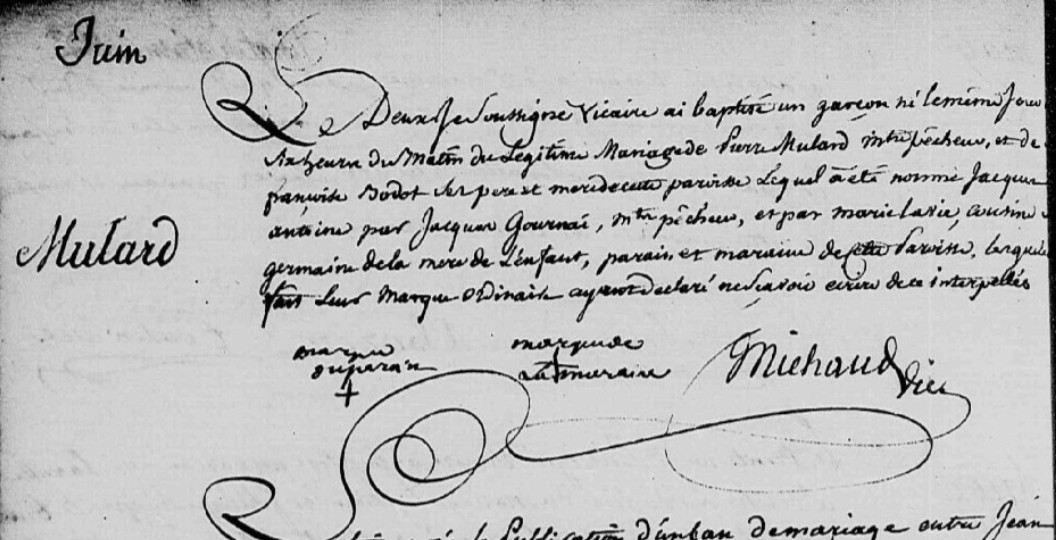 Juin
Le Deux Je Soussigné Vicaire ai baptisé un garçon né le même Jour
Six heure du Matin du Legitime Mariage de Pierre Mulard pêcheur, et de
françoise Bodot Ses pere et mere de cette paroisse Lequel a été nommé Jacque
Mulard
antoine par Jacque Gournai, pêcheur, et par marie lavié, cousine
germaine de la mere de L'enfant, parain et maraine de cette Paroisse, lesquels
font Leur Marque Ordinaire ayant Declaré ne Scavoir ecrire de ce interpellés
marque du parain
+
marque de
La + maraine
Michaud vic
Publication d'un ban de mariage entre Jean